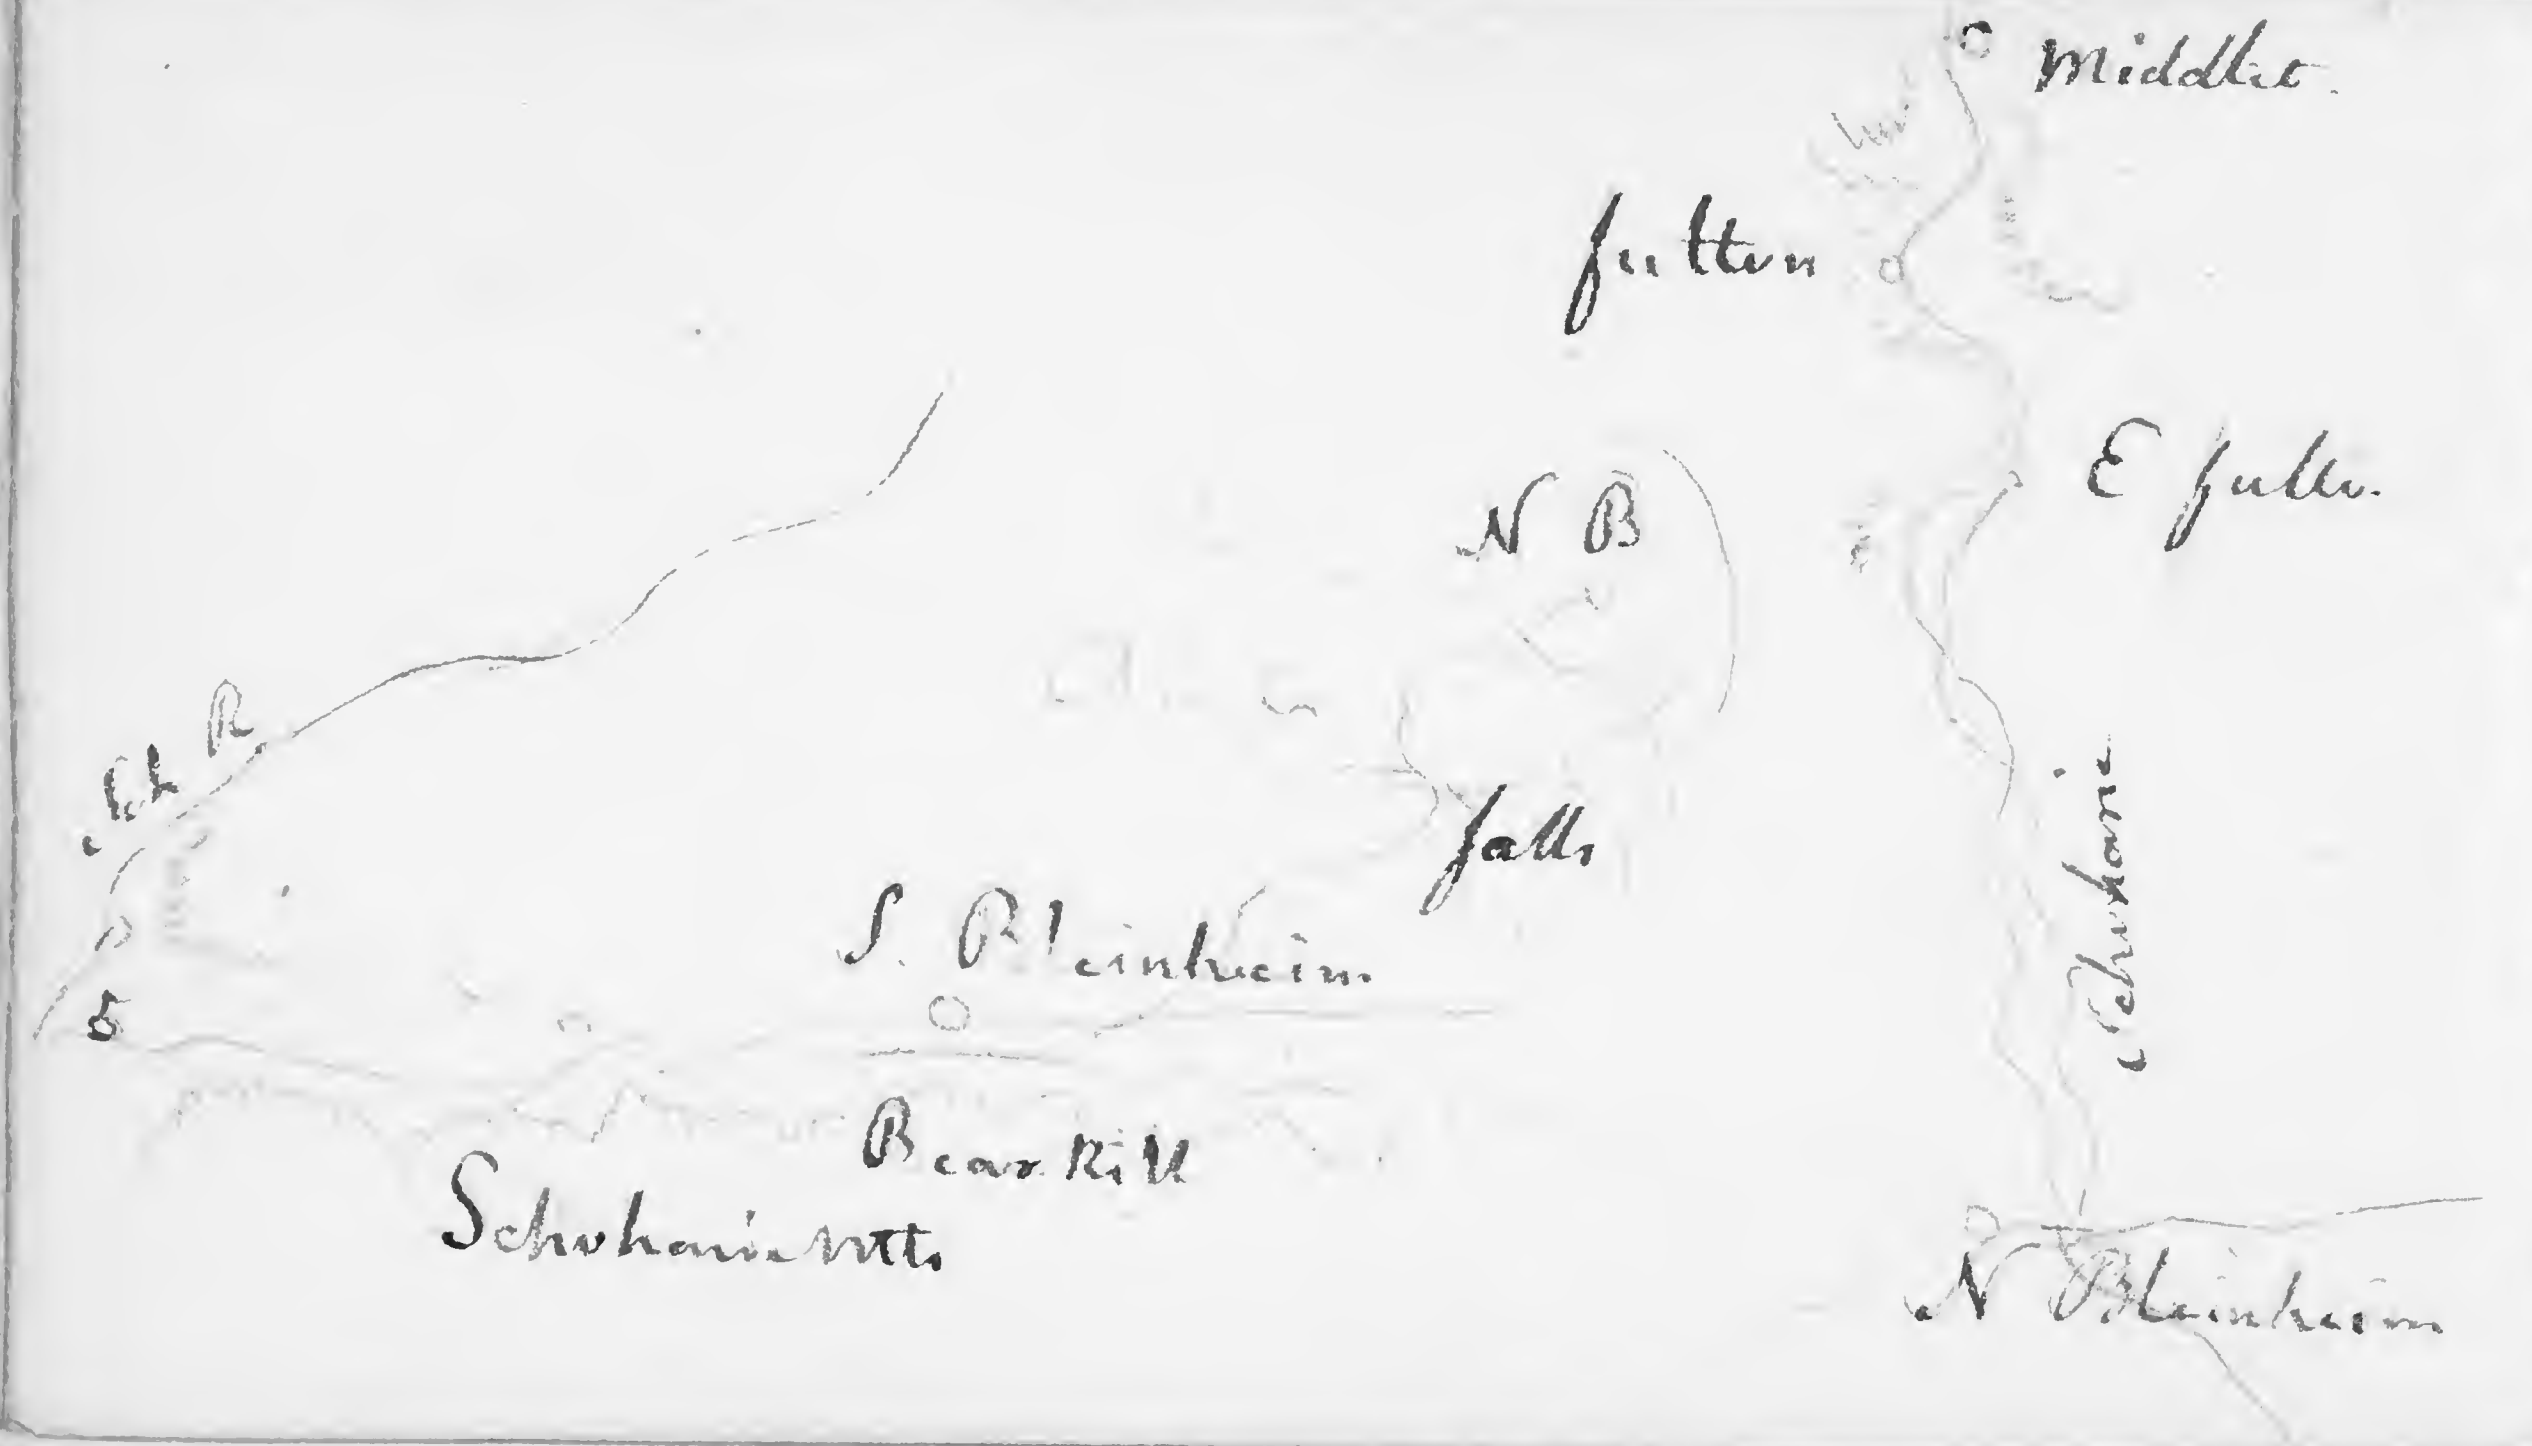 Middlet.
fultun
E fultn.
N B
Sch R
falls
Schoharie
S. Bleinheim
5
Bear Kill
Schoharie Mts
N Bleinheim